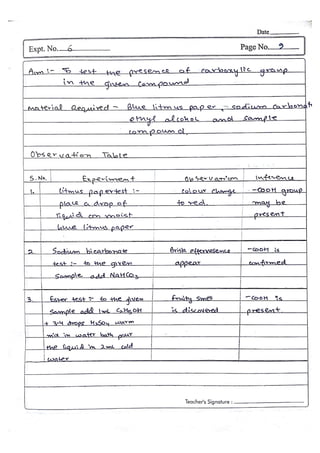 Date
Expt. No. 6 Page No. 9
Aim :- To test the presence of carboxylic group
in the given compound
Material Required - Blue litmus paper, sodium carbonate
ethyl alcohol and sample
compound.
Observation Table
S.No. Experiment Observation Inference
1. Litmus papertest :- Colour change -COOH group
place a drop of to red. may be
liquid on moist present
blue litmus paper
2 Sodium bicarbonate Brisk effervesence -COOH is
test :- to the given appear confirmed
Sample add NaHCO3
3. Ester test :- to the given fruity smell -COOH is
Sample add 1mL C2H5OH is discovered present.
+ 3-4 drops H2SO4 warm
mix in water bath pour
the liquid in 2mL cold
water
Teacher's Signature :